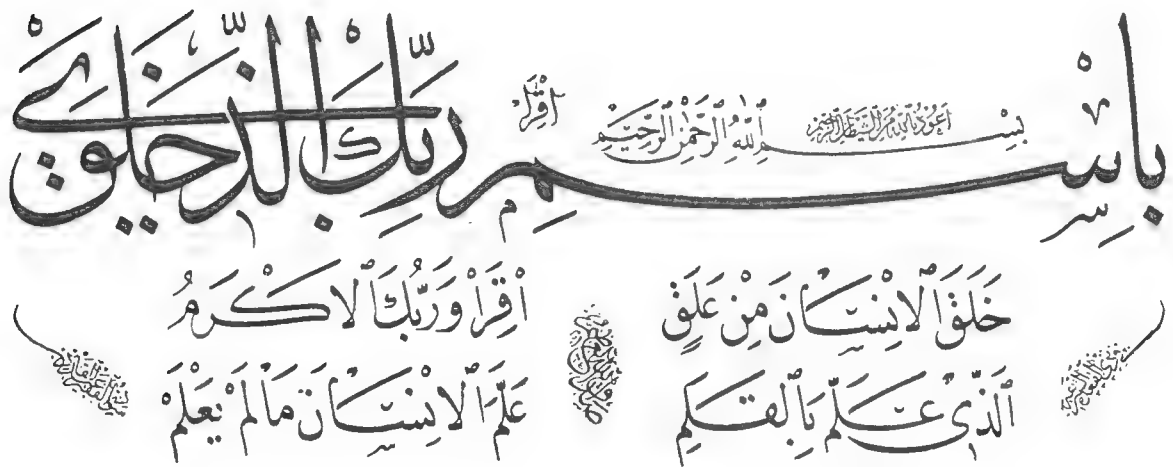 أعوذ بالله من الشيطان الرجيم
بِسْمِ ٱللّٰهِ ٱلرَّحْمٰنِ ٱلرَّحِيمِ
اِقْرَأْ
بِاسْمِ رَبِّكَ الَّذِي خَلَقَ
خَلَقَ ٱلْاِنْسَانَ مِنْ عَلَقٍ
اِقْرَأْ وَرَبُّكَ ٱلْاَكْرَمُ
ٱلَّذِى عَلَّمَ بِٱلْقَلَمِ
عَلَّمَ ٱلْاِنْسَانَ مَا لَمْ يَعْلَمْ